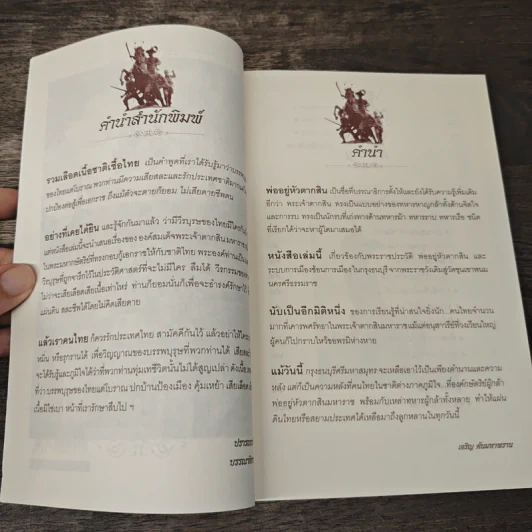 คำนำสำนักพิมพ์
รวมเลือดเนื้อชาติเชื้อไทย เป็นคำพูดที่เราได้รับรู้มาว่าบรรพ
ของไทยแต่โบราณ พวกท่านมีความเสียสละและรักประเทศชาติมาก
ปกป้องต่อสู้เพื่อเอกราช ถึงแม้ตัวจะตายก็ยอม ไม่เสียดายชีวิต
อย่างที่เคยได้ยิน และรู้จักกันมาแล้ว ว่ามีวีรบุรุษของไทยมีใคร
แต่หนังสือเล่มนี้จะนำเสนอเรื่องของ องค์สมเด็จพระเจ้าตากสินมหาราช
ในพระมหากษัตริย์ที่ทรงกอบกู้เอกราชให้กับชาติไทย พระองค์ท่านเป็น
วีรบุรุษที่ถูกจารึกไว้ในประวัติศาสตร์ที่จะไม่มีใคร ลืมได้ วีรกรรมของ
ไม่ว่าจะเสียเลือดเสียเนื้อเท่าไหร่ ท่านก็ยอมนั่นก็เพื่อจะธำรงค์รักษาไว้
แผ่นดิน สละชีพได้โดยไม่คิดเสียดาย
แล้วเราคนไทย ก็ควรรักประเทศไทย สามัคคีกันไว้ แล้วอย่าให้ใคร
หมิ่น หรือรุกรานได้ เพื่อวิญญาณของบรรพบุรุษที่พวกท่านได้ เสียสละ
จะได้รับรู้และภูมิใจได้ว่าที่พวกท่านทุ่มเทชีวิตนั้นไม่ได้สูญเปล่า ดังเนื้อ
ที่ว่า บรรพบุรุษของไทยแต่โบราณ ปกบ้านป้องเมือง คุ้มเหย้า เสียเลือด
เนื้อมิใช่เบา หน้าที่เรารักษาสืบไป ฯ
บรรณาธิการ
คำนำ
พ่ออยู่หัวตากสิน เป็นชื่อที่บรรณาธิการตั้งให้และยังได้รับความรู้เพิ่มเติม
อีกว่า พระเจ้าตาก ทรงเป็นแบบอย่างของทหารหาญกล้าทั้งด้านจิตใจ
และการรบ ทรงเป็นนักรบที่เก่งทางด้านทหารม้า ทหารราบ ทหารเรือ ชนิด
ที่เรียกได้ว่าจะหาผู้ใดมาเสมอได้
หนังสือเล่มนี้ เกี่ยวข้องกับพระราชประวัติ พ่ออยู่หัวตากสิน และ
ระบบการเมืองซ้อนการเมืองในกรุงธนบุรีจากพระราชวังเดิมสู่วัดขุนเขาพนม
นครศรีธรรมราช
นับเป็นอีกมิติหนึ่ง ของการเรียนรู้ที่น่าสนใจยิ่งนัก คนไทยจำนวน
มากที่เคารพศรัทธาในพระเจ้าตากสินมหาราชแม้แต่อนุสาวรีย์ที่วงเวียนใหญ่
ผู้คนก็ไปกราบไหว้ขอพรมิห่างหาย
แม้วันนี้ กรุงธนบุรีศรีมหาสมุทรจะเหลือเอาไว้เป็นเพียงตำนานและความ
หลัง แต่ก็เป็นความหลังที่คนไทยในชาติต่างภาคภูมิใจ ที่องค์กษัตริย์ผู้กล้า
พ่ออยู่หัวตากสินมหาราช พร้อมกับเหล่าทหารผู้กล้าทั้งหลาย ทำให้แผ่น
ดินไทยหรือสยามประเทศได้เหลือมาถึงลูกหลานในทุกวันนี้
เจริญ ตันมหาพราน